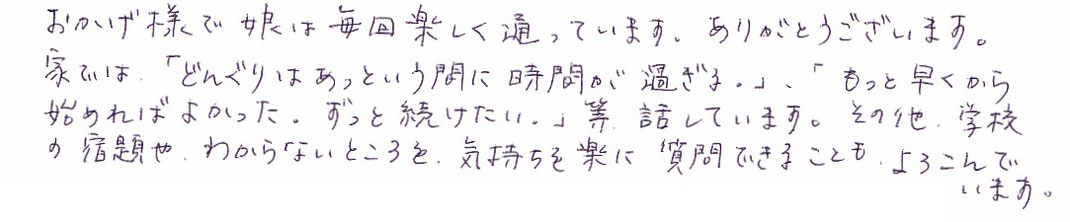 おかげ様で娘は毎回楽しく通っています。ありがとうございます。
家では、「どんぐりはあっという間に時間が過ぎる。」、「もっと早くから
始めればよかった。ずっと続けたい。」等、話しています。その他、学校
の宿題や、わからないところを、気持ちを楽に質問できることも、よろこんで
います。